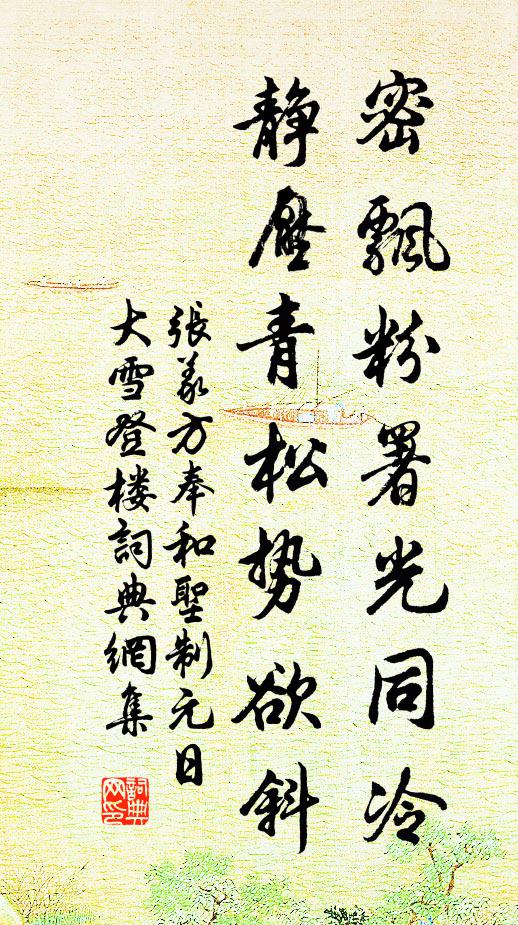 密飄粉署光同冷
静壓青松势欲斜
張義方奉和聖制元日
大雪登楼詞典網集
詞典
网印